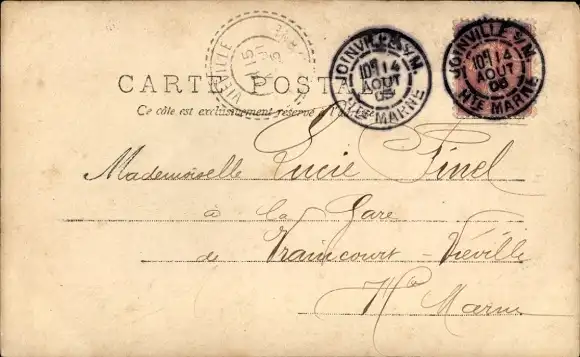 VIEVILLE
15
AOUT
05
JOINVILLE S/M
10H 14
AOUT
05
HTE MARNE
JOINVILLE S/M
10H 14
AOUT
05
HTE MARNE
CARTE POSTA
Ce côté est exclusivement réservé à l'a
Mademoiselle Lucie Pinel
à la Gare
de Vraincourt-Viéville
Hte Marne